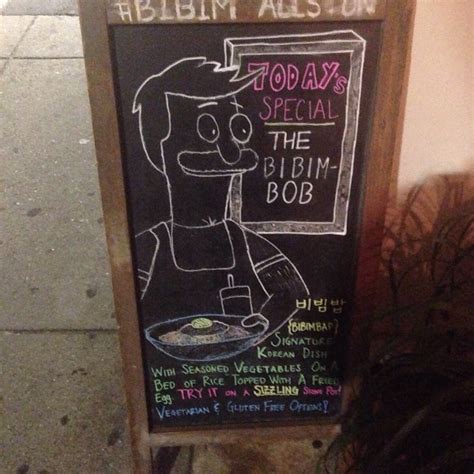 #BIBIM ALLSTON
TODAY'S
SPECIAL
THE
BIBIM-
BOB
비빔밥
{BIBIMBAP}
SIGNATURE
KOREAN DISH
WITH SEASONED VEGETABLES ON A
BED OF RICE TOPPED WITH A FRIED
EGG. TRY IT ON A SIZZLING STONE POT!
VEGETARIAN & GLUTEN FREE OPTIONS!